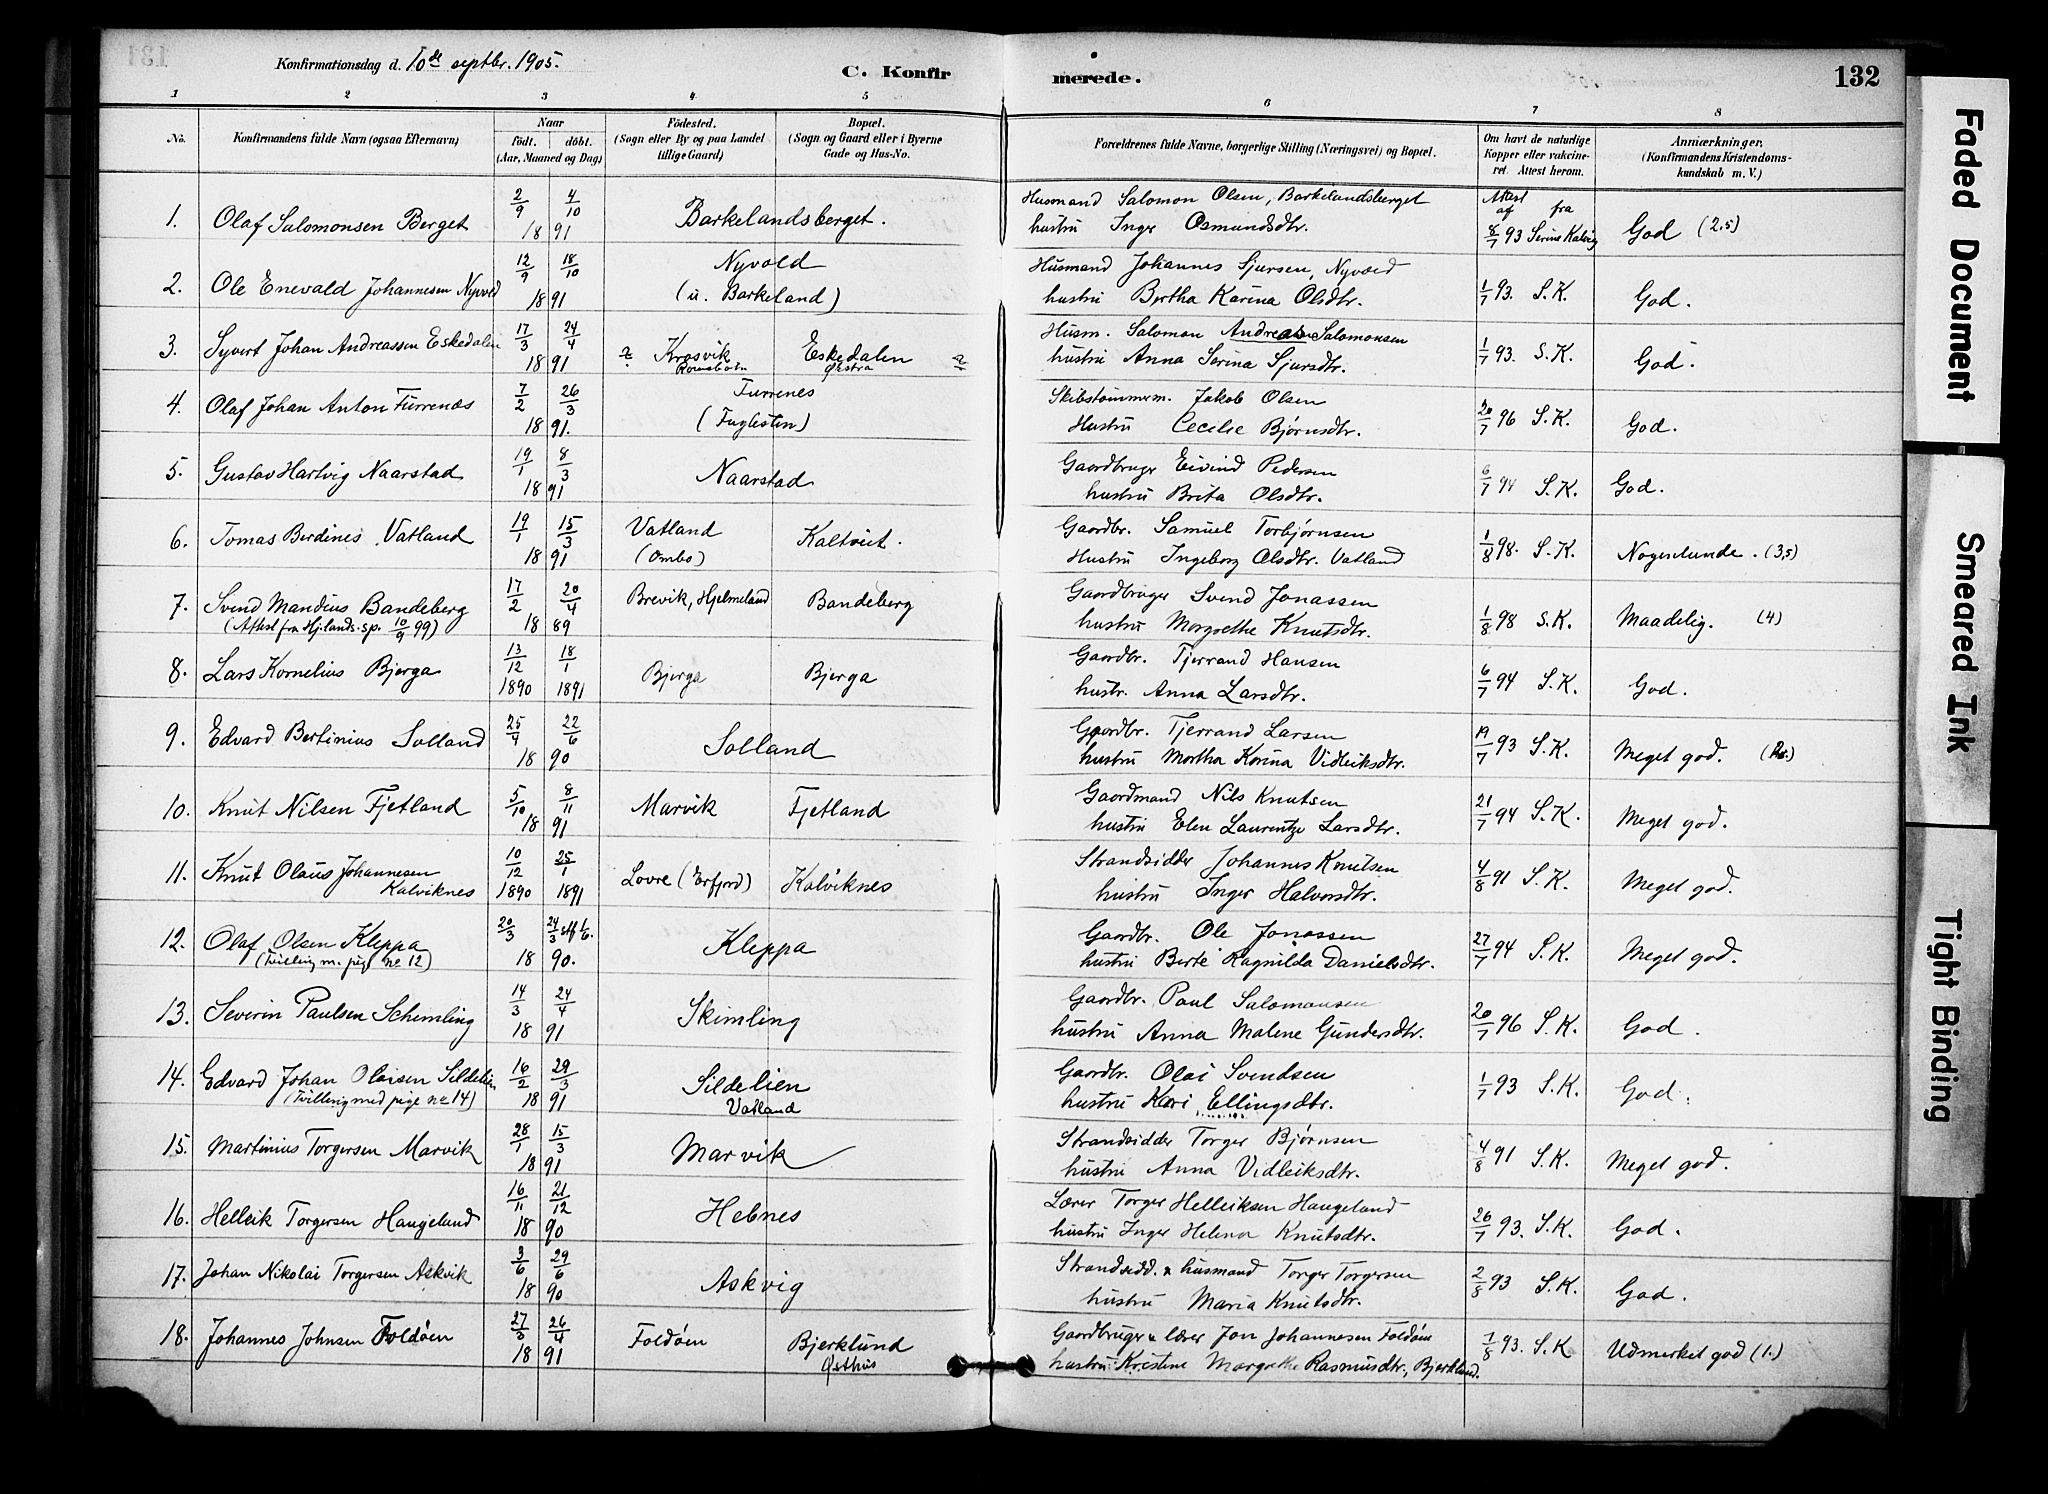 Konfirmationsdag d. 10de septbr. 1905.
C. Konfir merede.
132
1 2 3 4 5 6 7 8
No.
Konfirmandens fulde Navn (ogsaa Efternavn)
Naar
født. døbt.
(Aar, Maaned og Dag)
Fødested.
(Sogn eller By og paa Landet
tillige Gaard)
Bopæl.
(Sogn og Gaard eller i Byerne
Gade og Hus-No.
Forældrenes fulde Navne, borgerlige Stilling (Næringsvei) og Bopæl.
Om havt de naturlige
Kopper eller vakcine-
ret. Attest herom.
Anmærkninger,
(Konfirmandens Kristendoms-
kundskab m. V.)
1. Olaf Salomonsen Berget 2/9 4/10 1891 Barkelandsberget. Husmand Salomon Olsen, Barkelandsberget
hustru Inger Osmundsdtr. Attest af fra 8/7 93 Serine Kalvig God (2,5)
2. Ole Enevald Johannesen Nyvold 12/9 18/10 1891 Nyvold
(u. Barkeland) Husmand Johannes Sjursen, Nyvold
hustru Bertha Karina Olsdtr. 1/7 93. S.K. God.
3. Syvert Johan Andreassen Eskedalen 17/3 24/4 1891 Krosvik Eskedalen
Husm. Salomon Andreas Salomonsen
hustru Anna Serina Sjursdtr. 1/7 93. S.K. God.
4. Olaf Johan Anton Furrenæs 7/2 26/3 1891. Furrenes
(Fuglesten) Skibstømmerm. Jakob Olsen
Hustru Cecilie Bjørnsdtr. 20/7 96 S.K. God.
5. Gustav Hartvig Naarstad 19/1 8/3 1891 Naarstad Gaardbruger Eivind Pedersen
hustru Brita Olsdtr. 6/7 94 S.K. God.
6. Tomas Berdines Vatland 19/1 15/3 1891 Vatland
(Ombo) Kaltveit. Gaardbr. Samuel Torbjørnsen
Hustru Ingeborg Olsdtr. Vatland 1/8 98. S.K. Nogenlunde. (3,5)
7. Svend Mandius Bandeberg
(Attest fra Hj.lands. sp. 10/9 99) 17/2 20/4 1889 Brevik, Hjelmeland Bandeberg Gaardbruger Svend Jonassen
hustru Margrethe Knutsdtr. 1/8 98 S.K. Maadelig. (4)
8. Lars Kornelius Bjerga 13/12 1890 18/1 1891 Bjerga Bjerga Gaardbr. Tjerrand Hansen
hustr. Anna Larsdtr. 6/7 94 S.K. God.
9. Edvard Bertinius Solland 25/4 22/6 1890 Solland Gaardbr. Tjerrand Larsen
hustru Martha Karina Vidleiksdtr. 19/7 93 S.K. Meget god.
10. Knut Nilsen Fjetland 5/10 8/11 1891 Marvik Fjetland Gaardmand Nils Knutsen
hustru Elen Laurentze Larsdtr. 21/7 94 S.K. Meget god.
11. Knut Olaus Johannesen
Kalviknes 10/12 1890 25/1 1891 Lovre (Erfjord) Kalviknes Strandsidder Johannes Knutsen
hustru Inger Halvorsdtr. 4/8 91 S.K. Meget god.
12. Olaf Olsen Kleppa
(Tvilling m. pige no 12) 20/3 24/3 stf 1/6. 1890. Kleppa Gaardbr. Ole Jonassen
hustru Berte Ragnilda Danielsdtr. 27/7 94 S.K. Meget god.
13. Severin Paulsen Schimling 14/3 24/4 1891 Skimling Gaardbr. Paul Salomonsen
hustru Anna Malene Gundersdtr. 20/7 96 S.K. God.
14. Edvard Johan Olaisen Sildelien
(Tvilling med pige no 14) 16/2 29/3 1891 Sildelien
Vatland Gaardbr. Olai Svendsen
hustru Kari Ellingsdtr. 1/7 93 S.K. God.
15. Martinius Torgersen Marvik 28/1 15/3 1891 Marvik Strandsidder Torger Bjørnsen
hustru Anna Vidleiksdtr. 4/8 91 S.K. Meget god.
16. Helleik Torgersen Haugeland 16/11 21/12 1890 Hebnes Lærer Torger Helleiksen Haugeland
hustru Inger Helena Knutsdtr. 26/7 93. S.K. God.
17. Johan Nikolai Torgersen Askvik 3/6 29/6 1890 Askvig Strandsidd. & husmand Torger Torgersen
hustru Maria Knutsdtr. 2/8 93 S.K. God.
18. Johannes Johnsen Foldøen 27/3 26/4 1891 Foldøen Bjerklund
Østhus Gaardbruger & lærer Jon Johannesen Foldøen
hustru Kristine Margrethe Rasmusdtr., Bjerklund. 1/8 93. S.K Udmerket god (1.)
Faded Document
Smeared Ink
Tight Binding